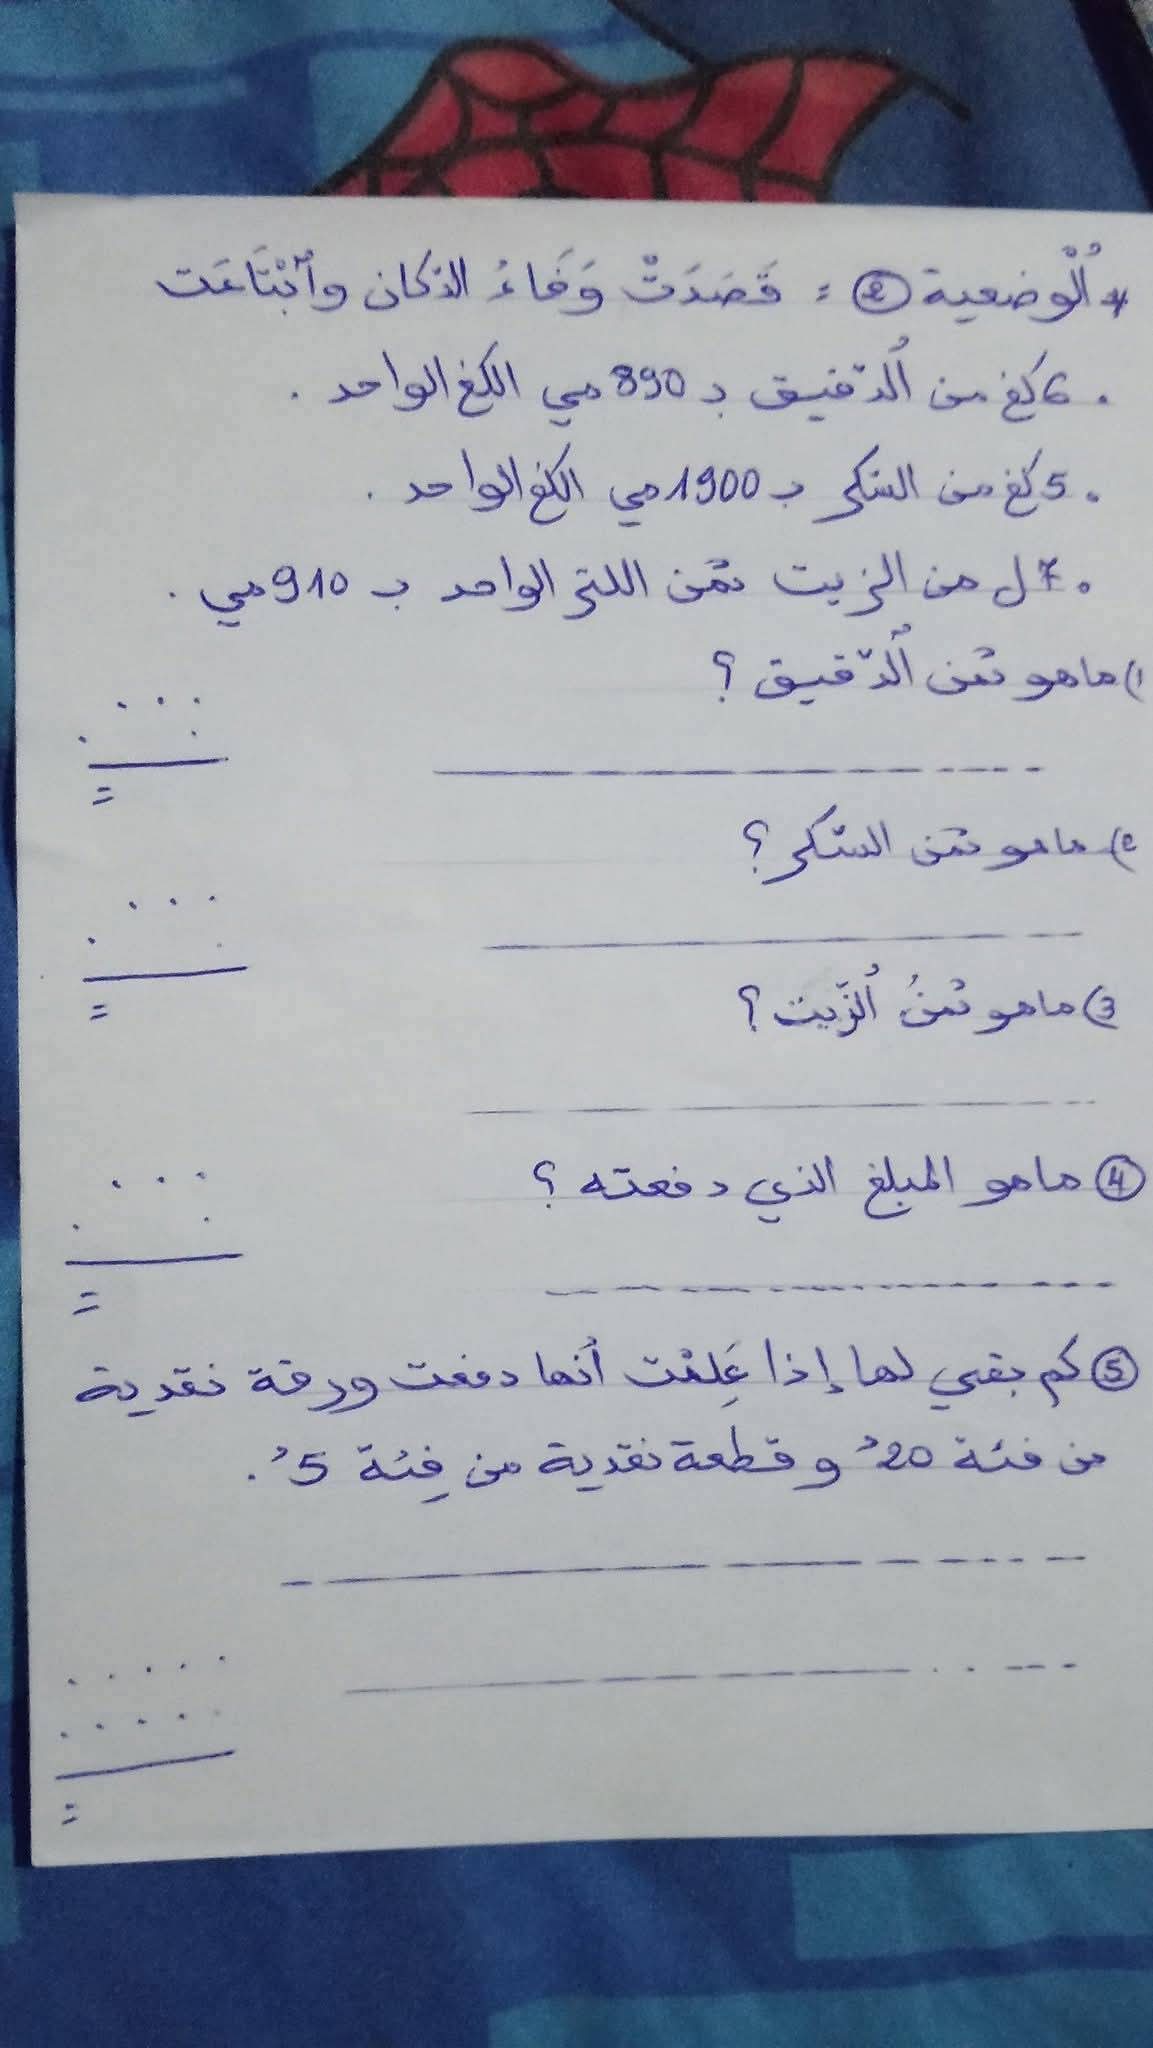 * اُلْوضعية ② : قَصَدَتْ وَفَاءُ الدّكان واْبْتَاعَت
. 6 كغ من اُلدّقيق بـ 890 مي الكغ الواحد .
. 5 كغ من السّكر بـ 1900 مي الكغ الواحد .
. 7 ل من الزيت ثمن اللتر الواحد بـ 910 مي .
1) ماهو ثمن اُلدّقيق ؟
=
2) ماهو ثمن السّكر ؟
=
3) ماهو ثمنُ اُلزّيت ؟
④ ماهو المبلغ الذي دفعته ؟
=
⑤ كم بقي لها إذا عَلِمْت أنها دفعت ورقة نقدية
من فئة 20د و قطعة نقدية من فِئة 5د .
=